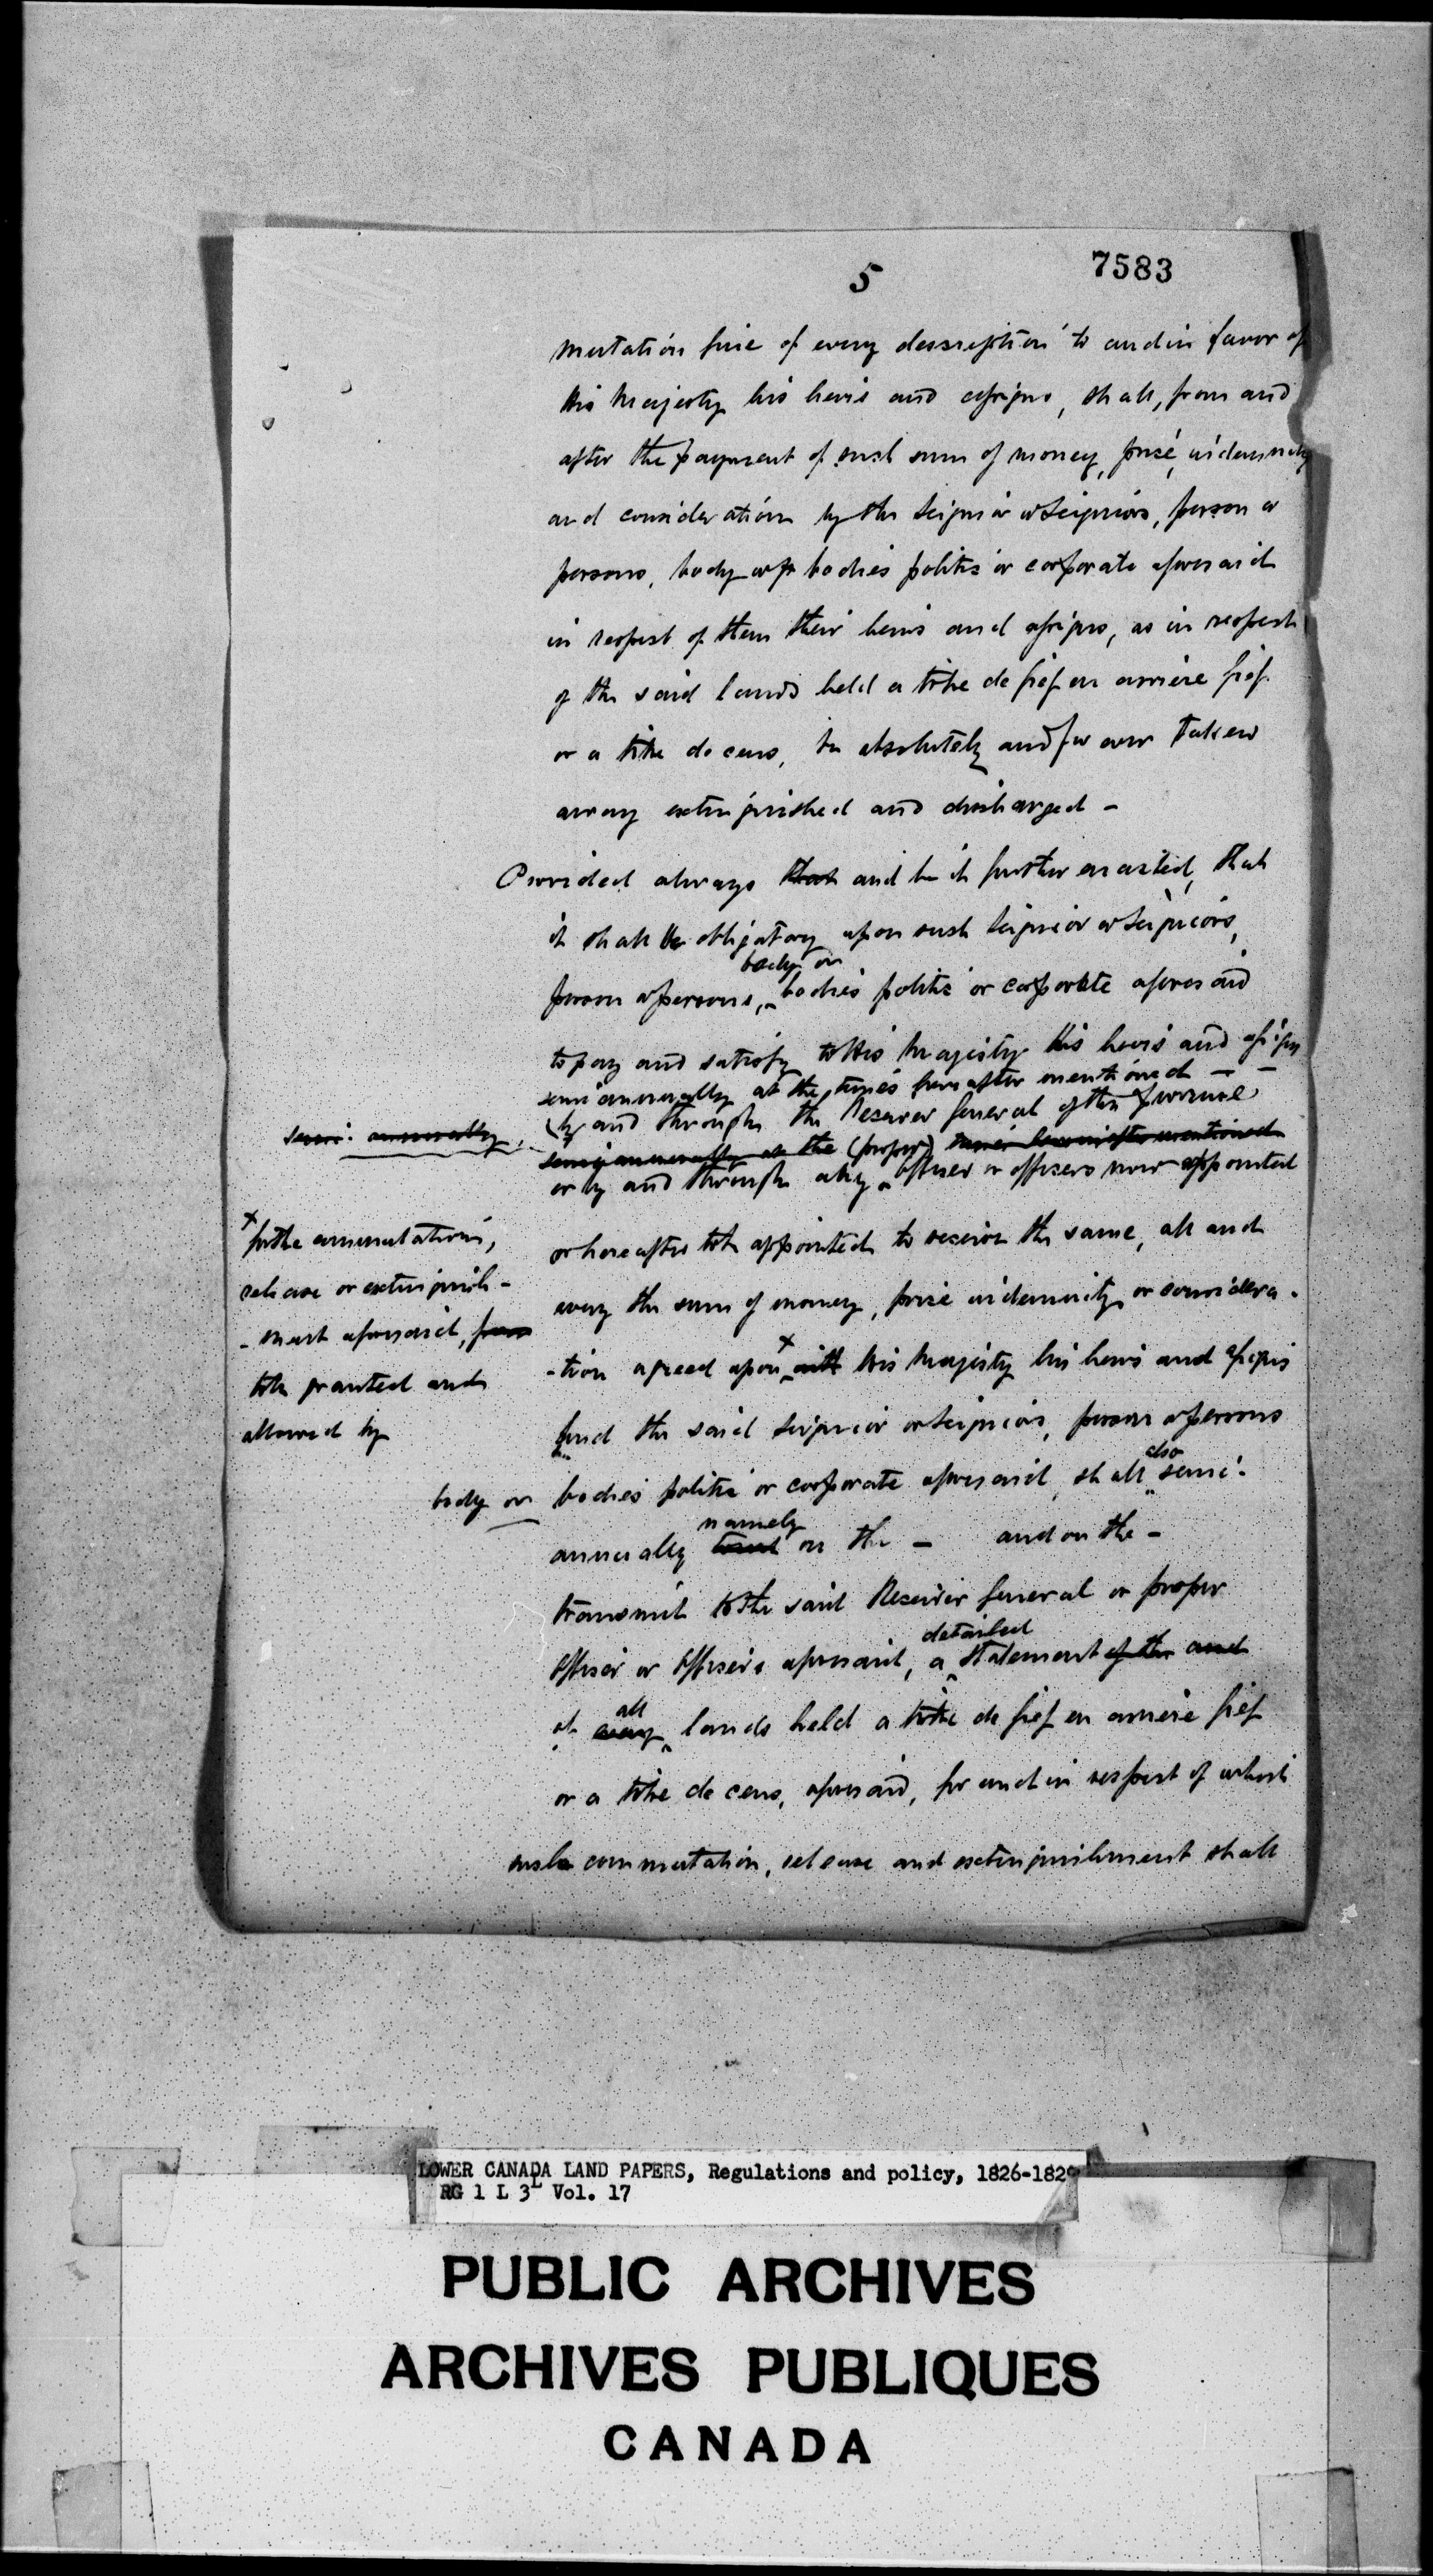 5
7583
mutation fine of every description to and in favor of
His Majesty his heirs and assigns, shall, from and
after the payment of such sum of money, price, indemnity
and consideration by the Seignior or Seigniors, person or
persons, body or bodies politic or corporate aforesaid
in respect of them their heirs and assigns, as in respect
of the said lands held a titre de fief en arriere fief
or a titre de cens, be absolutely and for ever taken
away extinguished and discharged -
Provided always that and be it further enacted, that
it shall be obligatory upon such Seignior or Seigniors,
body or
person or persons, bodies politic or corporate aforesaid
to pay and satisfy to His Majesty His heirs and assigns
semi annually at the times hereafter mentioned - -
by and through the Receiver General of the Province
semi: annually
semi annually at the (proper) times hereinafter mentioned
or by and through any officer or officers now appointed
or hereafter to be appointed to receive the same, all and
every the sum of money, price indemnity or considera-
-tion agreed upon x with His Majesty his heirs and assigns
x for the commutation,
release or extinguish-
-ment aforesaid, from
to be granted and
allowed by
And the said Seignior or Seigniors, person or persons
body or
bodies politic or corporate aforesaid, shall also semi-
namely
annually on the - and on the -
transmit to the said Receiver General or proper
detailed
officer or officers aforesaid, a statement of the and
all
of every lands held a titre de fief en arriere fief
or a titre de cens, aforesaid, for and in respect of which
such commutation, release and extinguishment shall
LOWER CANADA LAND PAPERS, Regulations and policy, 1826-1829
RG 1 L 3L Vol. 17
PUBLIC ARCHIVES
ARCHIVES PUBLIQUES
CANADA